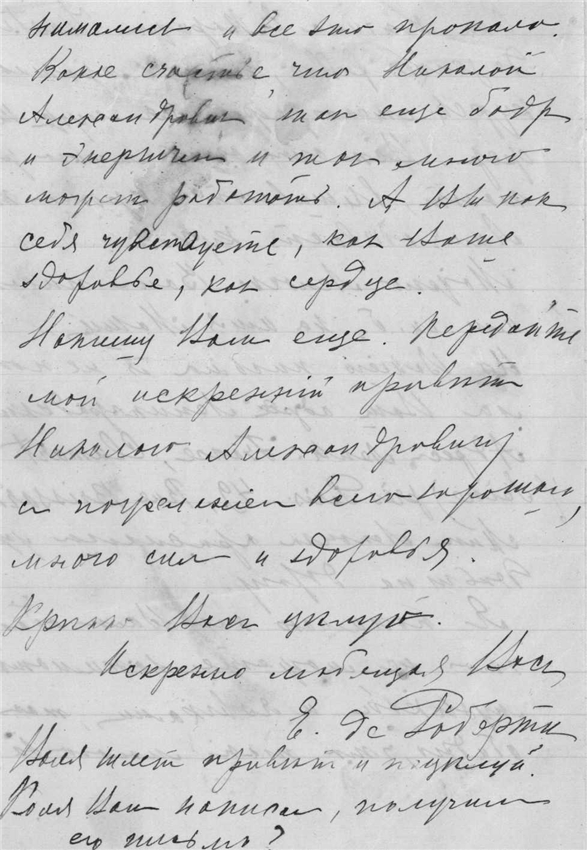 нимались и все это пропало.
Какое счастье что Николай
Александрович так еще бодр
и энергичен и так много
может работать. А Вы как
себя чувствуете, как Ваше
здоровье, как сердце.
Напишу Вам еще. Передайте
мой искренній привѣт
Николаю Александровичу
с пожеланіем всего хорошаго,
много сил и здоровья.
Крѣпко Вас цѣлую.
Искренно любящая Вас
Е. де Роберти
шлет привѣт и поцѣлуй.
Коля Вам написал, получили
его письмо?